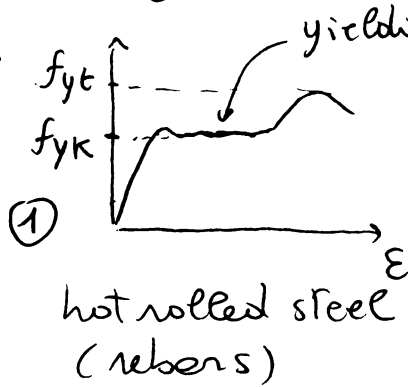 yieldi
fyt
fyk
①
ε
hot rolled steel
(rebars)